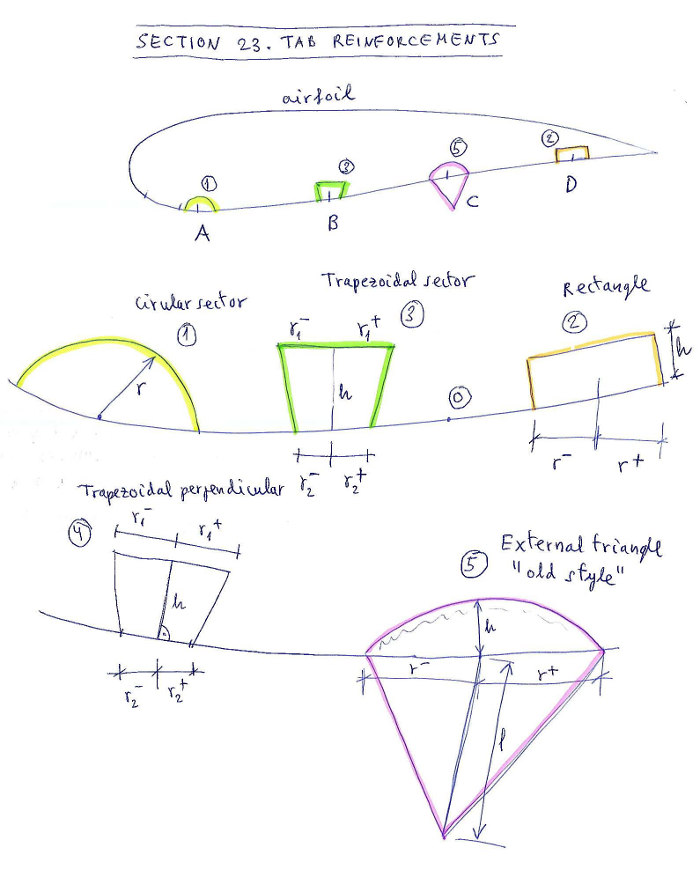 SECTION 23. TAB REINFORCEMENTS
airfoil
① ③ ⑤ ②
A B C D
Cirular sector
①
r
Trapezoidal sector
③
r₁⁻ r₁⁺
h
r₂⁻ r₂⁺
⓪
Rectangle
②
h
r⁻ r⁺
Trapezoidal perpendicular
④
r₁⁻ r₁⁺
h
r₂⁻ r₂⁺
External triangle
⑤ "old style"
h
r⁻ r⁺
l